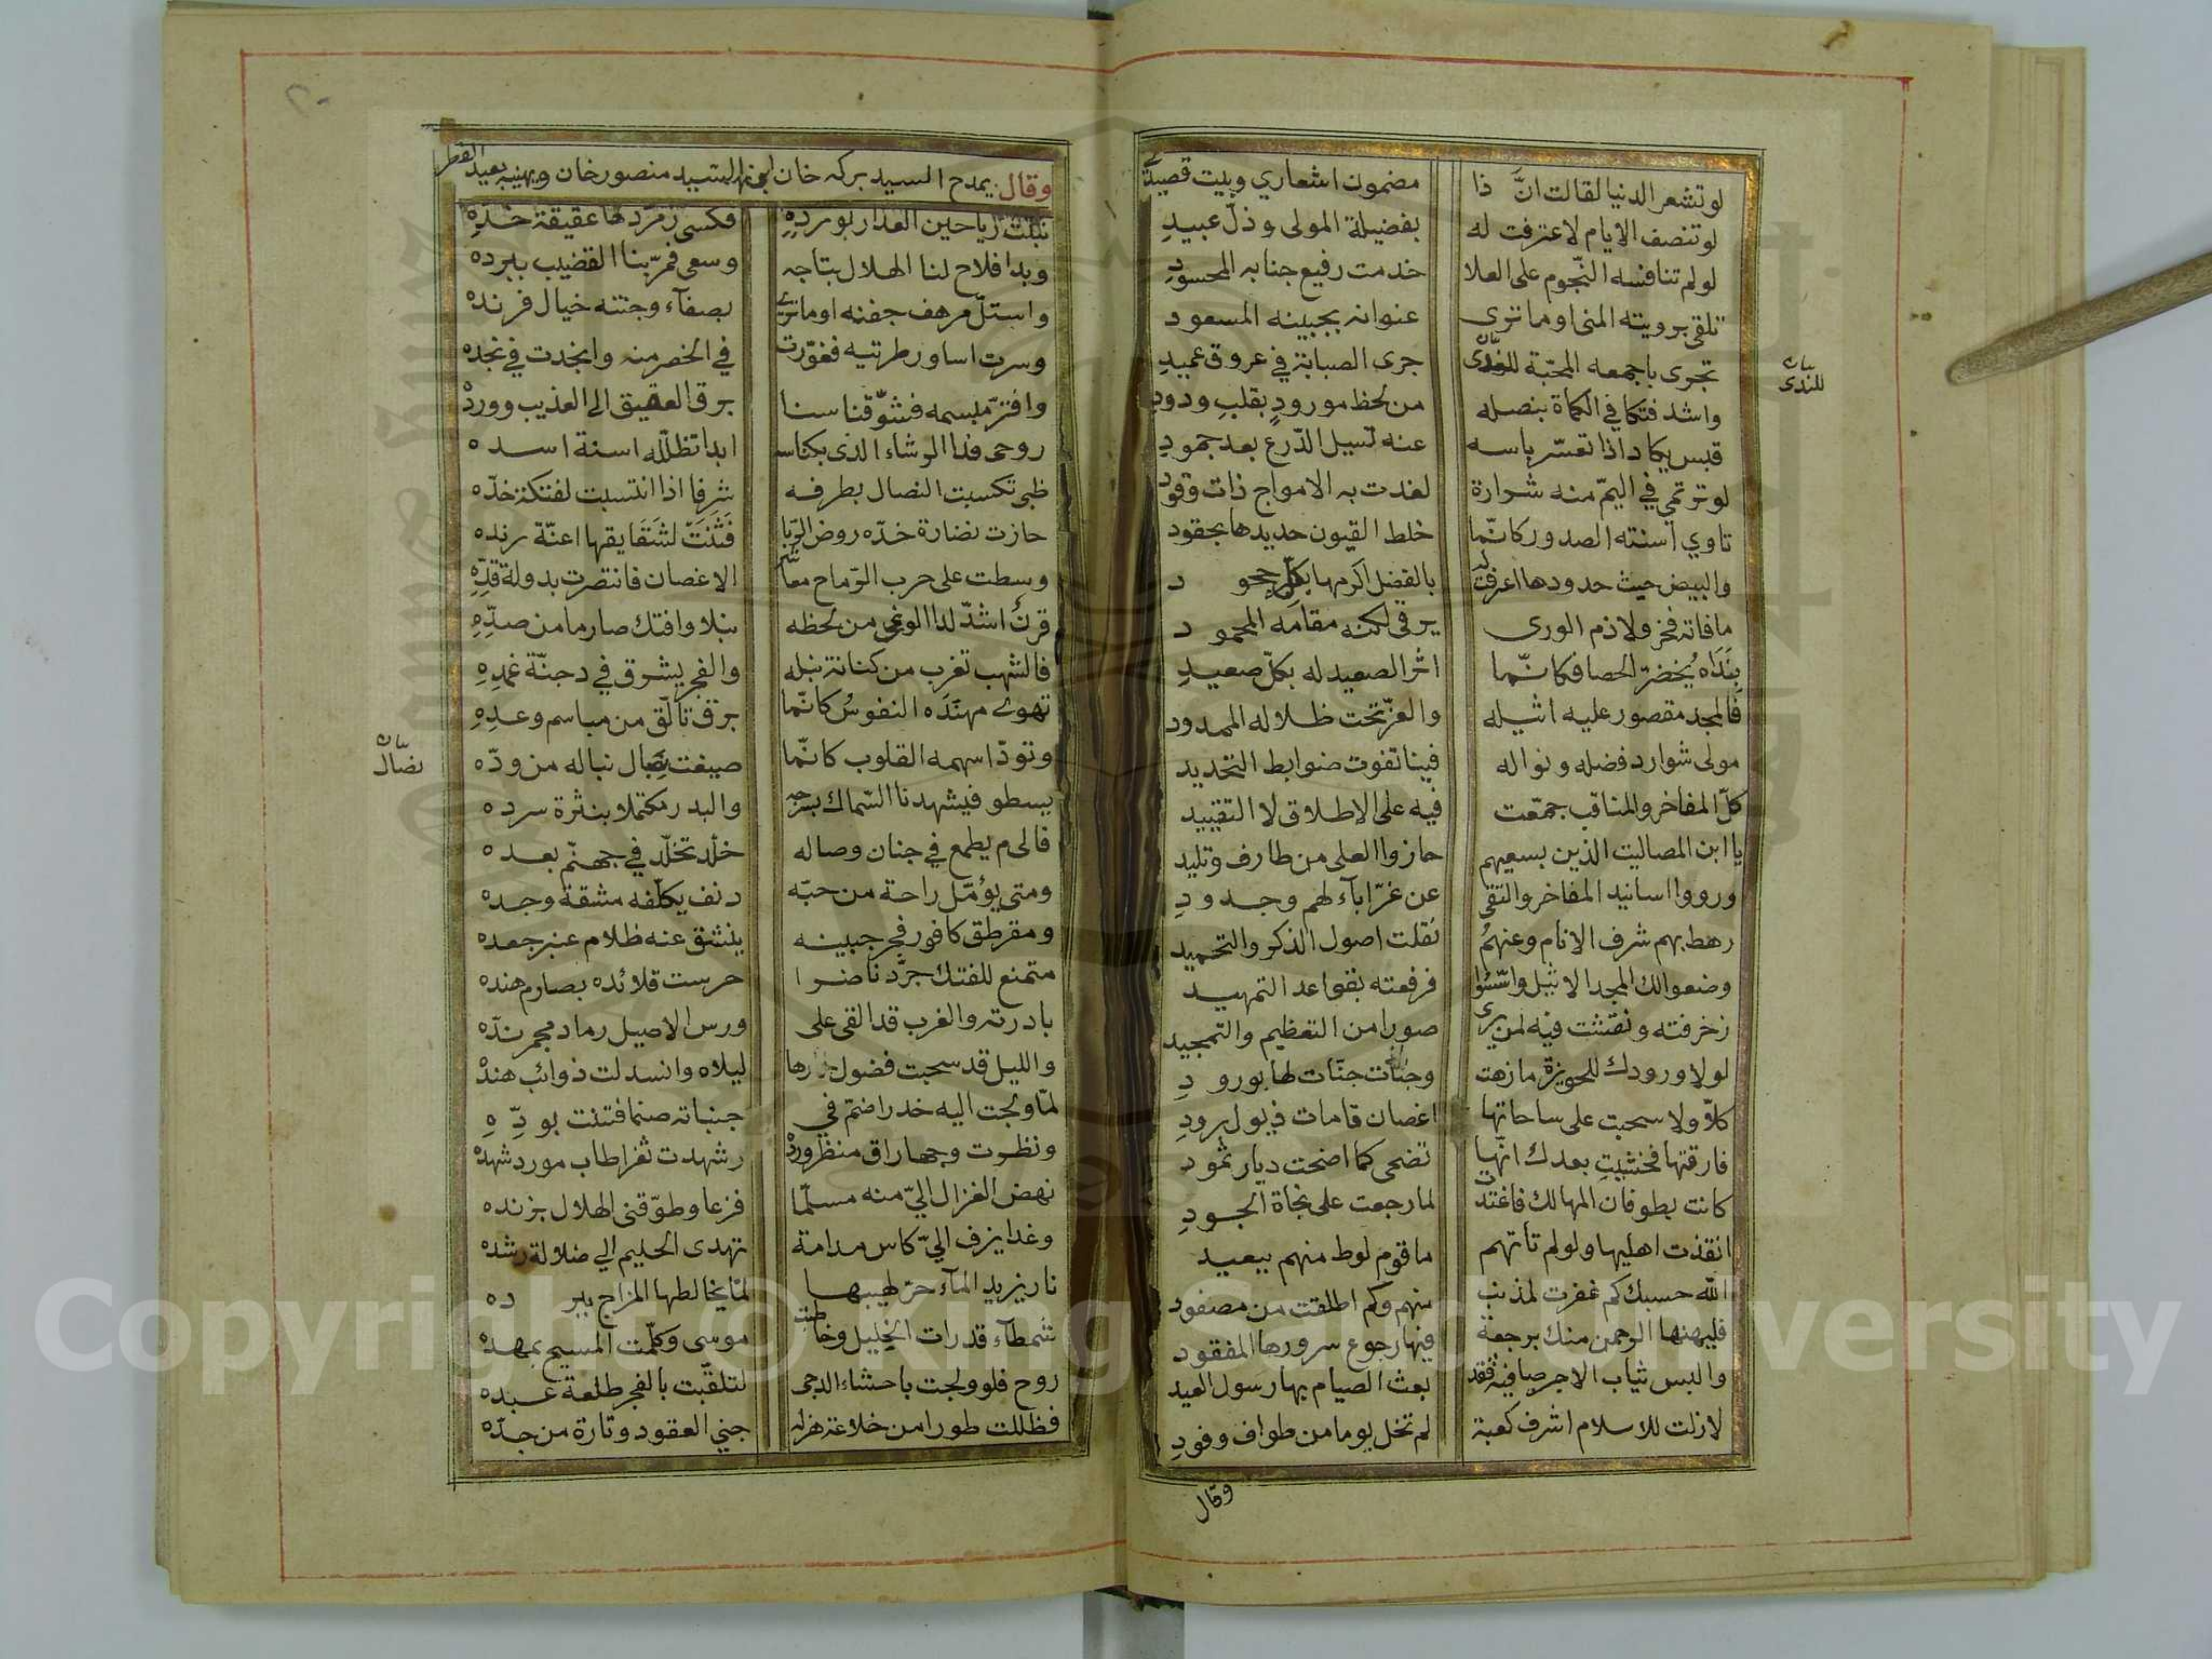 لو تشعر الدنيا لقالت انّ ذا مضمون اشعاري وبيت قصيد
لو تنصف الايام لاعترفت له بفضيلة المولى وذلّ عبيدِ
لو لم تنافسه النّجوم على العلا خدمت رفيع جنابه المحسودِ
تلقى برويته المنى او ما ترى عنوانه بجبينه المسعود
تجرى باجمعه المحبّة للندى جرى الصبابة في عروق عميدِ
بيان للندى
واشد فتكا في الكماة بنصله من لحظ مورودٍ بقلبِ ودودِ
قبس يكاد اذا تعسّر باسه عنه تسيل الدّرع بعد جمودِ
لو ترتمي في اليمّ منه شرارة لغدت به الامواج ذات وقود
تاوي اسنته الصدور كانّما خلط القيون حديدها بحقود
والبيض حيث حدودها اعرفت له بالفضل اكرمها بكلّ جحود
ما فاته فخر ولا ذم الورى يرقى لكنه مقامه المحمود
بنداه يخضرّ الحصا فكانّما اثر الصعيد له بكلّ صعيدِ
فالمجد مقصور عليه اثيله والعزّ تحت ظلاله الممدود
مولى شوارد فضله ونواله فينا تفوت ضوابط التحديد
كلّ المفاخر والمناقب جمّعت فيه على الاطلاق لا التقييد
يا ابن المصاليت الذين بسعيهم حازوا العلى من طارف وتليد
ورووا اسانيد المفاخر والتقى عن غرّ اباء لهم وجدودِ
رهط بهم شرف الانام وعنهمُ نقلت اصول الذكر والتحميد
وضعوا لك المجد الاثيل واسّسوا فرفعته بقواعد التمهيد
زخرفته ونقشت فيه لمن يرى صورا من التعظيم والتمجيد
لولا ورودك للحويزة ما زهت وجنات جنّات لها بورودِ
كلّا ولا سحبت على ساحاتها اغصان قامات ذيول برودِ
فارقتها فخشيت بعدك انّها تضحى كما اضحت ديار ثمود
كانت بطوفان المهالك فاغتدت لما رجعت على نجاة الجودِ
انقذت اهليها ولو لم تأتهم ما قوم لوط منهم ببعيد
الله حسبك كم غفرت لمذنب منهم وكم اطلقت من مصفود
فليهنها الرحمن منك برجعة فيها رجوع سرورها المفقود
والبس ثياب الاجر صافية فقد بعث الصيام بها رسول العيد
لا زلت للاسلام اشرف كعبة لم تخل يوما من طواف وفودِ
وقال
٢٠
وقال يمدح السيد بركه خان ابن السيد منصور خان ويهنيه بعيد الفطر
نبتت رياحين العذار بورده فكسى زمرّدها عقيقة خدّهِ
وبدا فلاح لنا الهلال بتاجه وسعى فمرّ بنا القضيب ببرده
واستلّ مرهف جفنه او ما ترى بصفاء وجنته خيال فرنده
وسرت اساور طرتيه فغوّرت في الخصر منه وانجدت في نجده
وافترّ مبسمه فشوّقنا سنا برق العقيق الى العذيب وورده
روحى فدا الرشاء الذى بكناسه ابدا تظلّله اسنة اسده
ظبى تكسبت النصال بطرفه شرفا اذا انتسبت لفتكة خدّه
حازت نضارة خدّه روض الربا فثنت لشقايقها اعنّة رنده
وسطت على حرب الرّماح معاشر الاغصان فانتصرت بدولة قدّهِ
قرنٌ اشدّ لدا الوغى من لحظه نبلا وافتك صارما من صدّهِ
فالشهب تغرب من كنانة نبله والفجر يشرق في دجنّة غمدهِ
تهوى مهنّده النفوس كانّما برق تألّق من مباسم وعدِهِ
وتودّ اسهمه القلوب كانّما صيغت نصال نباله من ودّه
بيان نصال
يسطو فيشهدنا السّماك برمحه والبدر مكتملا بنثرة سرده
فالى م يطمع في جنان وصاله خلد تخلّد في جهنّم بعده
ومتى يؤمّل راحة من حبّه دنف يكلّفه مشقة وجده
ومقرطق كافور فجر جبينه ينشق عنه ظلام عنبر جعده
متمنع للفتك جرّد ناضرا حرست قلائده بصارم هنده
بادرته والغرب قد القى على ورس الاصيل رماد مجمر ندّه
والليل قد سحبت فضول خمارها ليلاه وانسدلت ذوائب هنده
لمّا ولجت اليه خدرا ضمّ في جنباته صنما فتنت بودّهِ
ونظرت وجها راق منظر ورده وشهدت ثغرا طاب مورد شهده
نهض الغزال اليّ منه مسلّما فزعا وطوّقنى الهلال بزنده
وغدا يزف اليّ كاس مدامة تهدى الحليم الى ضلالة رشده
نار يزيد الماء حرّ لهيبها لمّا يخالطها المزاج ببرده
شمطاء قد رات الخليل وخاطبت موسى وكلّمت المسيح بمهده
روح فلو ولجت باحشاء الدجى لتلقّبت بالفجر طلعة عبده
فظللت طورا من خلاعة هزله جنى العقود وتارة من جدّه
Copyright © King Saud University